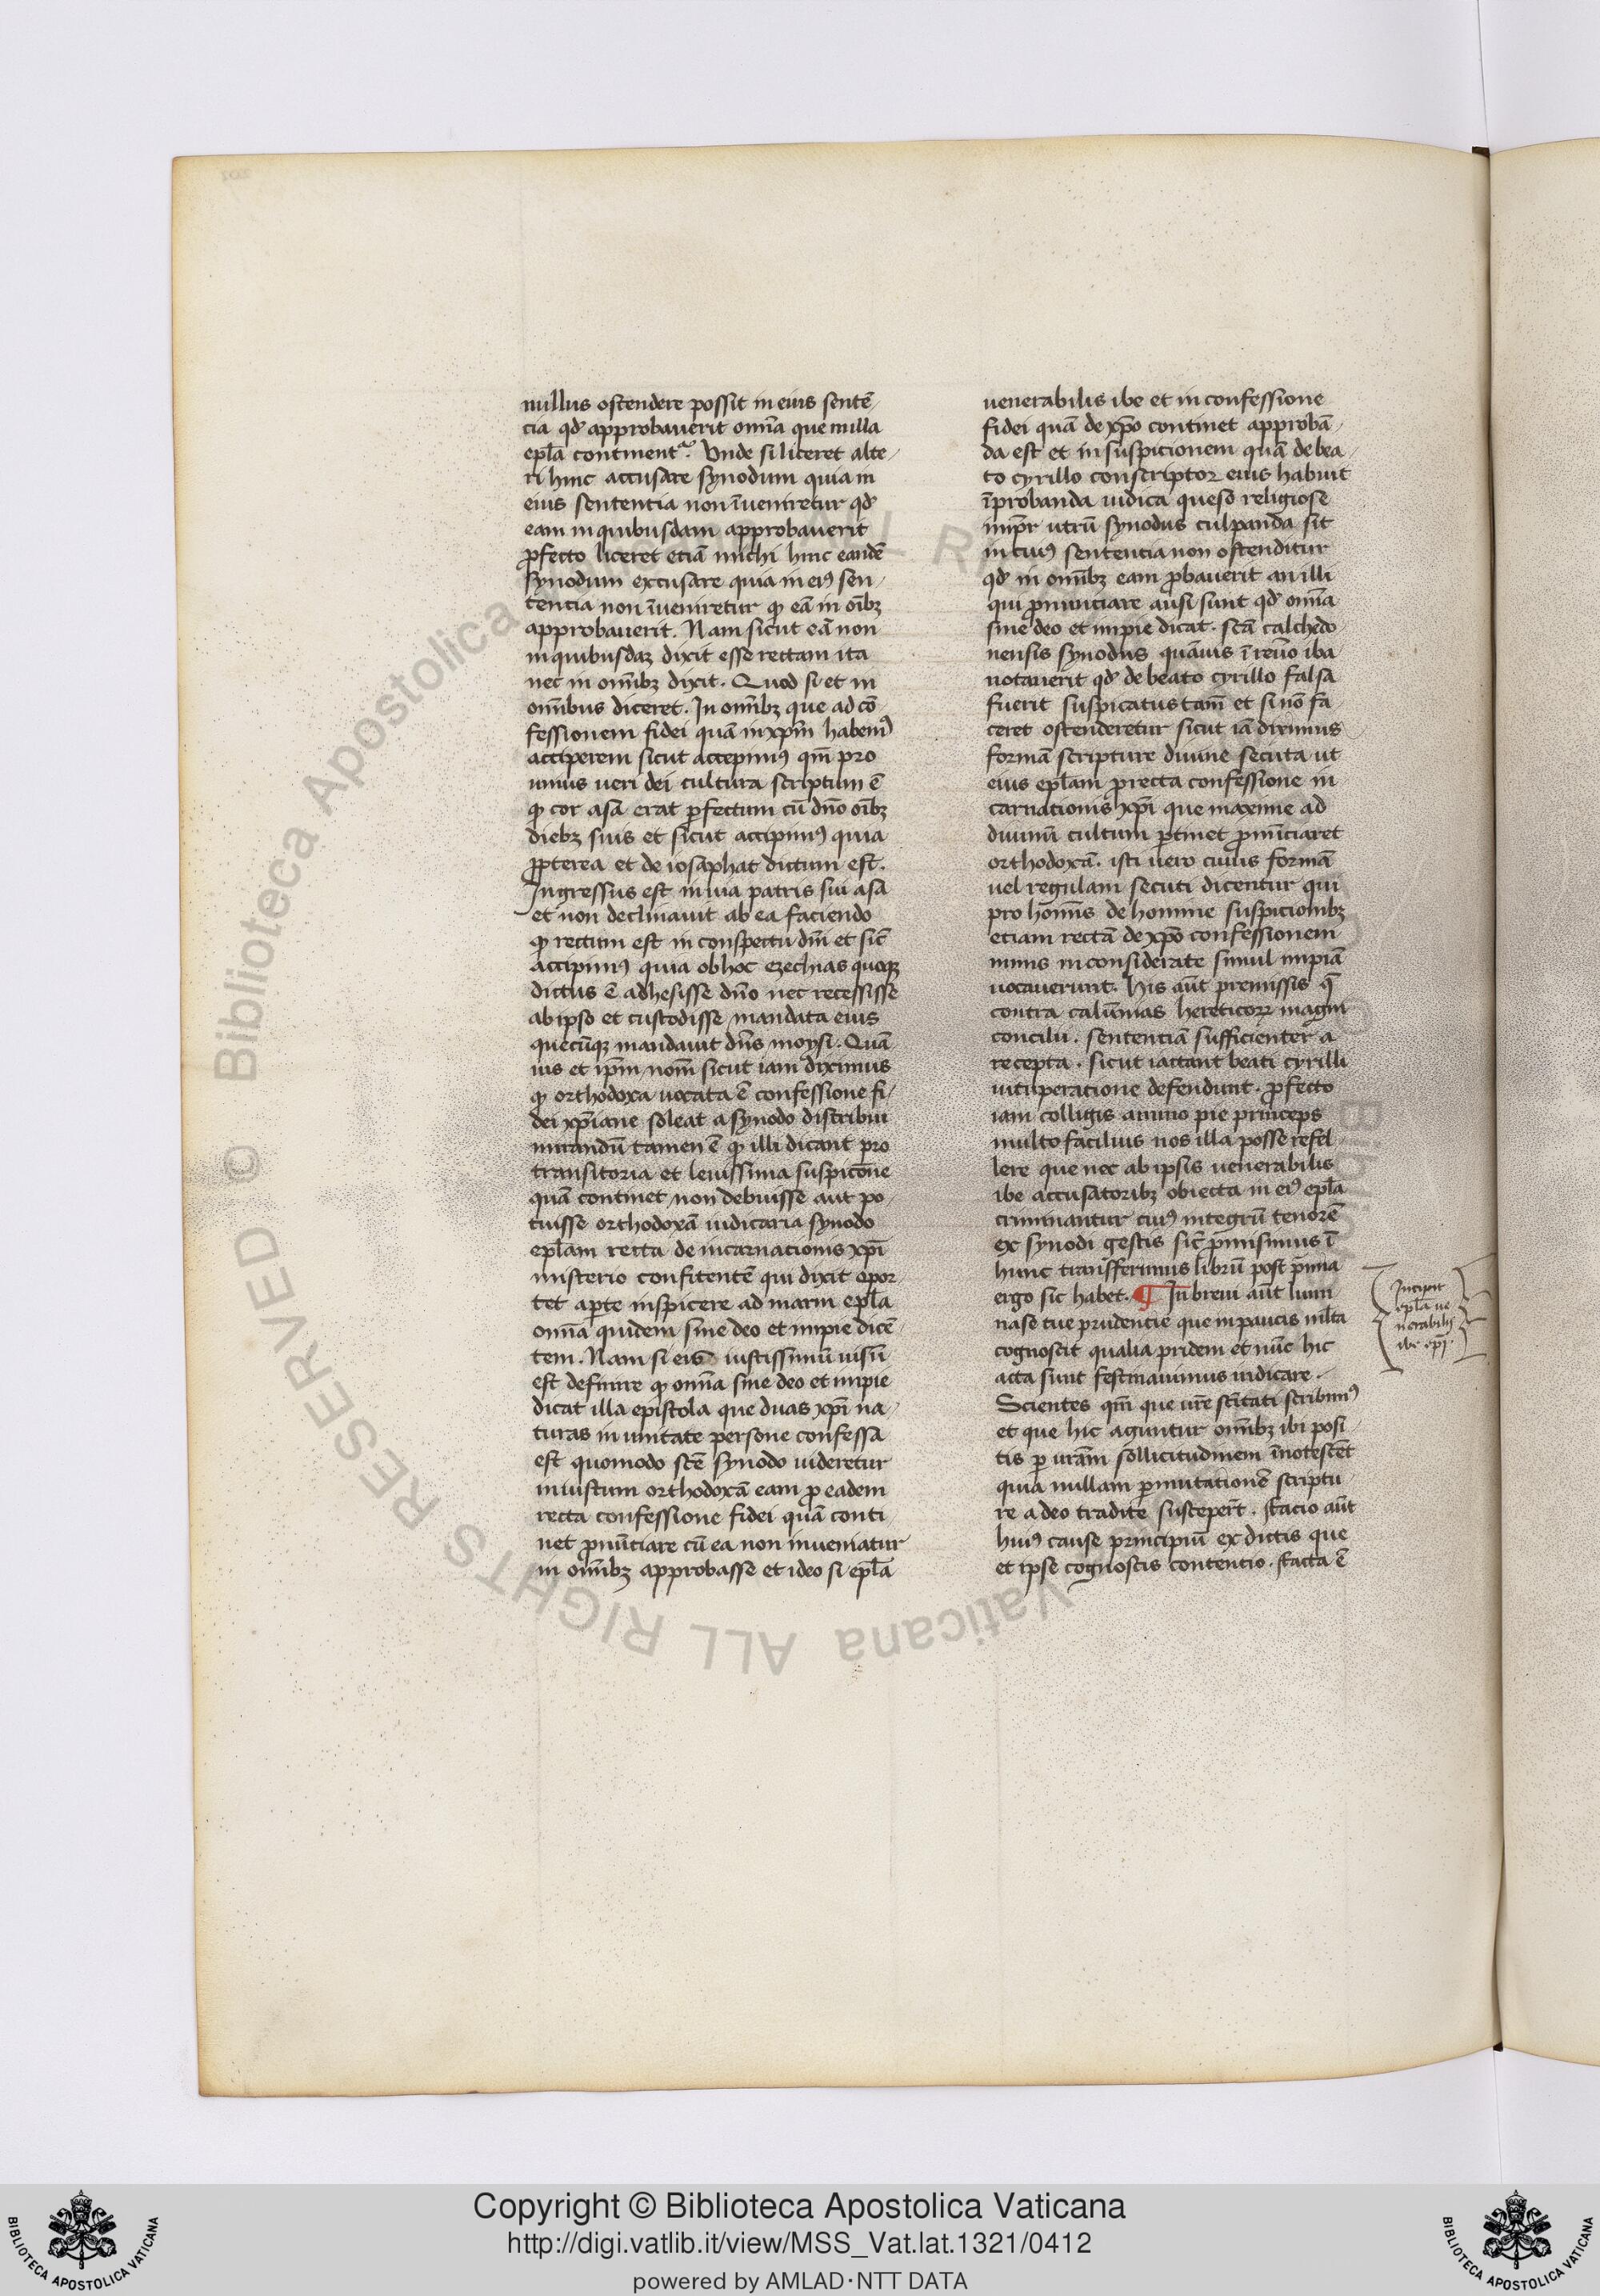 nullus ostendere possit in eius sentē
cia qđ approbauerit om̄ia que in illa
epl̄a continentᷣ. Vnde si liceret alte
ri hinc accusare synodum quia in
eius sententia non īueniretur qđ
eam in quibusdam approbauerit
ꝓfecto liceret etiā michi hinc eandē
synodum excusare quia in eiꝰ sen
tencia non īueniretur ꝙ eā in oībꝫ
approbauerit. Nam sicut eā non
in quibusdaꝫ dixit esse rectam ita
nec in om̄ibꝫ dixit. Quod si et in
om̄ibus diceret. In om̄ibꝫ que ad cō
fessionem fidei quā in xp̄m habemꝰ
acciperem sicut accepimꝰ qm̄ pro
unius ueri dei cultura scriptum ē
ꝙ cor asa erat ꝑfectum cū dn̄o oībꝫ
diebꝫ suis et sicut accipimꝰ quia
ꝓpterea et de iosaphat dictum est.
Ingressus est in uia patris sui asa
et non declinauit ab ea faciendo
ꝙ rectum est in conspectu dn̄i et sic̄
accipimꝰ quia ob hoc ezechias quoqꝫ
dictus ē adhesisse dn̄o nec recessisse
ab ipso et custodisse mandata eius
quecūqꝫ mandauit dn̄s moysi. Quā
uis et ip̄m nom̄ sicut iam diximus
ꝙ orthodoxa uocata ē confessione fi
dei xp̄iane soleat a synodo discribui
mirandū tamen ē ꝙ illi dicant pro
transitoria et leuissima suspicōne
quā continet non debuisse aut po
tuisse orthodoxā iudicaria synodo
epl̄am recta de incarnacionis xp̄i
misterio confitentē qui dixit opor
tet aꝑte inspicere ad marin epl̄a
om̄ia quidem sine deo et impie dicē
tem. Nam si eis iustissimū uisū
est definire ꝙ om̄ia sine deo et impie
dicat illa epistola que duas xp̄i na
turas in unitate persone confessa
est quomodo scē synodo uideretur
iniustum orthodoxā eam ꝓ eadem
recta confessione fidei quā conti
net ꝓnūciare cū ea non inueniatur
in om̄ibꝫ approbasse et ideo si epl̄a
uenerabilis ibe et in confessione
fidei quā de xp̄o continet approbā
da est et in suspicionem quā de bea
to cyrillo conscriptor eius habuit
īprobanda iudica queso religiose
imp̄r utrū synodus culpanda sit
in cuiꝰ sentencia non ostenditur
qđ in om̄ibꝫ eam ꝓbauerit an illi
qui ꝓnunciare ausi sunt qđ om̄ia
sine deo et impie dicat. scā calchedo
nensis synodus quāuis ī
notauerit qđ de beato cyrillo falsa
fuerit suspicatus tam̄ et si nō fa
ceret ostenderetur sicut iā diximus
formā scripture diuine secuta ut
eius epl̄am ꝓ recta confessione in
carnationis xp̄i que maxime ad
diuinū cultum ꝑtinet ꝓnūciaret
orthodoxā. isti uero cuius formā
uel regulam secuti dicentur qui
pro hom̄is de homine suspicionibꝫ
etiam rectā de xp̄o confessionem
nimis inconsiderate simul impiā
uocauerunt. His aūt premissis q̄
contra calūnias hereticoꝝ magni
concilii. sententiā sufficienter a
recepta. sicut iactant beati cyrilli
uituperacione defendunt. ꝓfecto
iam colligis animo pie princeps
multo facilius nos illa posse refel
lere que nec ab ipsis uenerabilis
ibe accusatoribꝫ obiecta in eiꝰ epl̄a
criminantur cuiꝰ integrū tenorē
ex synodi gestis sic̄ p̄misimus ī
hunc transferimus librū post prima
ergo sic habet. ¶ In breui aūt lumi
nase tue prudentie que in paucis ml̄ta
cognoscit qualia pridem et nūc hic
acta sunt festinauimus indicare.
Scientes qm̄ que ur̄e sc̄itati scribimꝰ
et que hic aguntur om̄ibꝫ ibi posi
tis ꝑ ur̄am sollicitudinem īnotescēt
quia nullam ꝑmutationē scriptu
re a deo tradite susceper̄t. ffacio aūt
huiꝰ cause principiū ex dictis que
et ipse cognoscis contentio. ffacta ē
Incipit
epl̄a ue
nerabilis
ibe ep̄i.
Copyright © Biblioteca Apostolica Vaticana
http://digi.vatlib.it/view/MSS_Vat.lat.1321/0412
powered by AMLAD·NTT DATA
BIBLIOTECA APOSTOLICA VATICANA
BIBLIOTECA APOSTOLICA VATICANA
© Biblioteca Apostolica Vaticana ALL RIGHTS RESERVED